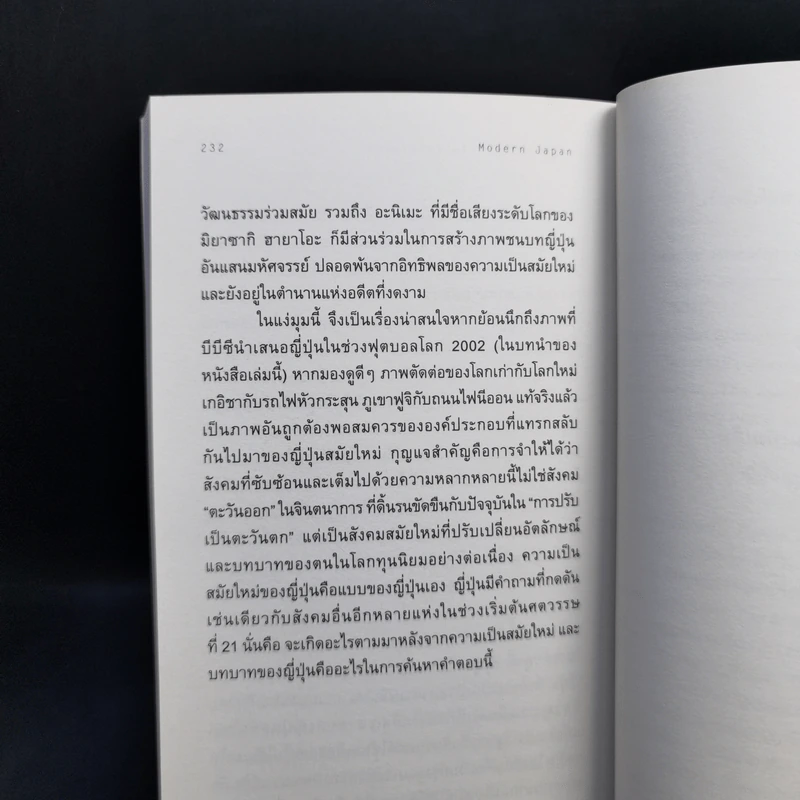 232
Modern Japan
วัฒนธรรมร่วมสมัย รวมถึง อะนิเมะ ที่มีชื่อเสียงระดับโลกของ
มิยาซากิ ฮายาโอะ ก็มีส่วนร่วมในการสร้างภาพชนบทญี่ปุ่น
อันแสนมหัศจรรย์ ปลอดพ้นจากอิทธิพลของความเป็นสมัยใหม่
และยังอยู่ในตำนานแห่งอดีตที่งดงาม
ในแง่มุมนี้ จึงเป็นเรื่องน่าสนใจหากย้อนนึกถึงภาพที่
บีบีซีนำเสนอญี่ปุ่นในช่วงฟุตบอลโลก 2002 (ในบทนำของ
หนังสือเล่มนี้) หากมองดูดีๆ ภาพตัดต่อของโลกเก่ากับโลกใหม่
เกอิชากับรถไฟหัวกระสุน ภูเขาฟูจิกับถนนไฟนีออน แท้จริงแล้ว
เป็นภาพอันถูกต้องพอสมควรขององค์ประกอบที่แทรกสลับ
กันไปมาของญี่ปุ่นสมัยใหม่ กุญแจสำคัญคือการจำให้ได้ว่า
สังคมที่ซับซ้อนและเต็มไปด้วยความหลากหลายนี้ไม่ใช่สังคม
“ตะวันออก” ในจินตนาการ ที่ดิ้นรนขัดขืนกับปัจจุบันใน “การปรับ
เป็นตะวันตก” แต่เป็นสังคมสมัยใหม่ที่ปรับเปลี่ยนอัตลักษณ์
และบทบาทของตนในโลกทุนนิยมอย่างต่อเนื่อง ความเป็น
สมัยใหม่ของญี่ปุ่นคือแบบของญี่ปุ่นเอง ญี่ปุ่นมีคำถามที่กดดัน
เช่นเดียวกับสังคมอื่นอีกหลายแห่งในช่วงเริ่มต้นศตวรรษ
ที่ 21 นั่นคือ จะเกิดอะไรตามมาหลังจากความเป็นสมัยใหม่ และ
บทบาทของญี่ปุ่นคืออะไรในการค้นหาคำตอบนี้